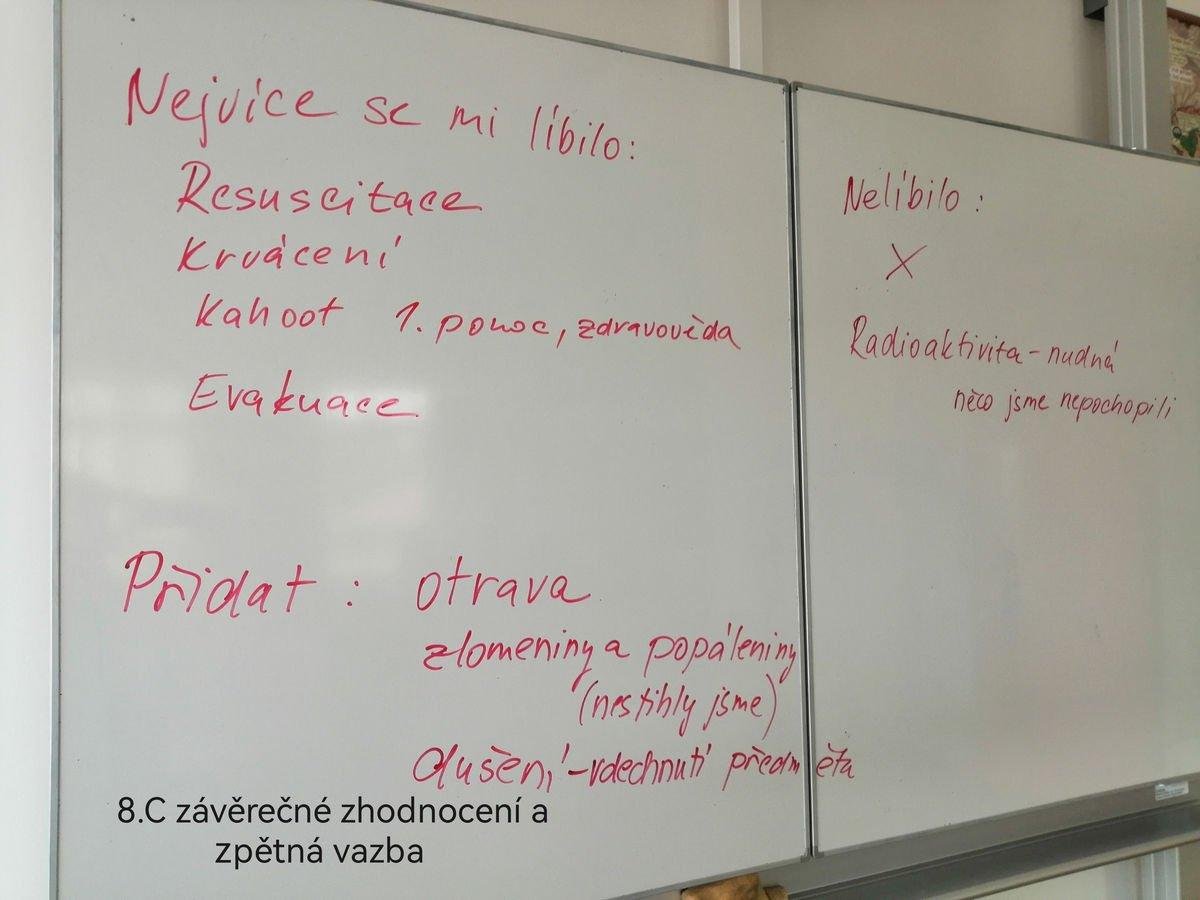 Nejvíce se mi líbilo:
Resuscitace
Krvácení
Kahoot 1. pomoc, zdravověda
Evakuace
Přidat: otrava
zlomeniny a popáleniny
(nestihly jsme)
dušení - vdechnutí předměta
Nelíbilo:
X
Radioaktivita - nudná
něco jsme nepochopili
8.C závěrečné zhodnocení a
zpětná vazba